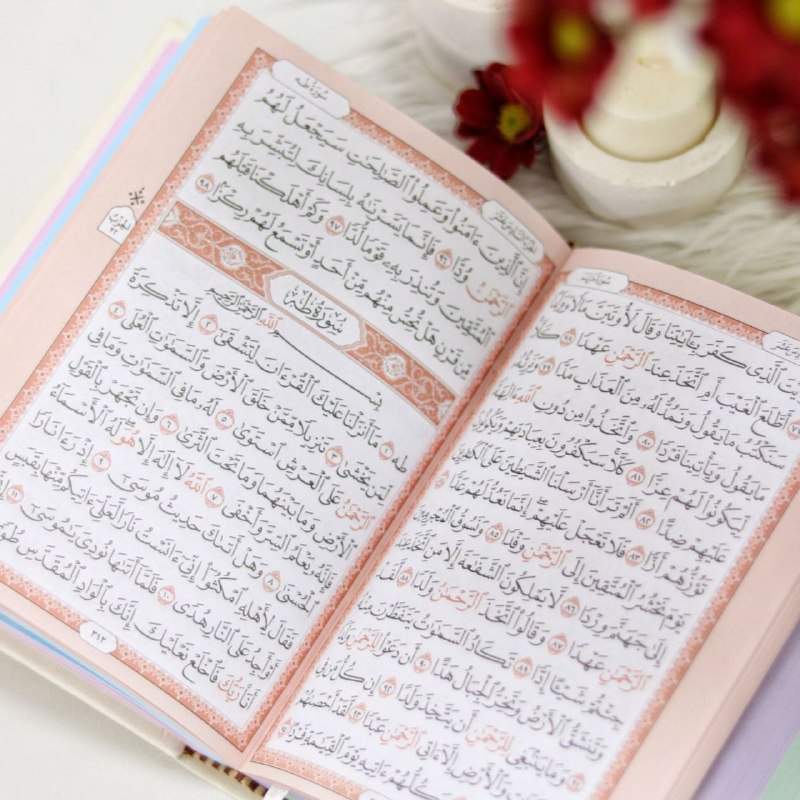 سُورَةُ مَرْيَمَ
ٱلَّذِى كَفَرَ بِـَٔايَٰتِنَا وَقَالَ لَأُوتَيَنَّ مَالًا وَوَلَدًا ٧٧
أَطَّلَعَ ٱلْغَيْبَ أَمِ ٱتَّخَذَ عِندَ ٱلرَّحْمَٰنِ عَهْدًا ٧٨ كَلَّا
سَنَكْتُبُ مَا يَقُولُ وَنَمُدُّ لَهُۥ مِنَ ٱلْعَذَابِ مَدًّا ٧٩ وَنَرِثُهُۥ
مَا يَقُولُ وَيَأْتِينَا فَرْدًا ٨٠ وَٱتَّخَذُوا۟ مِن دُونِ ٱللَّهِ ءَالِهَةً
لِّيَكُونُوا۟ لَهُمْ عِزًّا ٨١ كَلَّا سَيَكْفُرُونَ بِعِبَادَتِهِمْ وَيَكُونُونَ
عَلَيْهِمْ ضِدًّا ٨٢ أَلَمْ تَرَ أَنَّآ أَرْسَلْنَا ٱلشَّيَٰطِينَ عَلَى ٱلْكَٰفِرِينَ
تَؤُزُّهُمْ أَزًّا ٨٣ فَلَا تَعْجَلْ عَلَيْهِمْ إِنَّمَا نَعُدُّ لَهُمْ عَدًّا
يَوْمَ نَحْشُرُ ٱلْمُتَّقِينَ إِلَى ٱلرَّحْمَٰنِ وَفْدًا ٨٥ وَنَسُوقُ ٱلْمُجْرِمِينَ
إِلَىٰ جَهَنَّمَ وِرْدًا ٨٦ لَّا يَمْلِكُونَ ٱلشَّفَٰعَةَ إِلَّا مَنِ ٱتَّخَذَ
ٱلرَّحْمَٰنِ عَهْدًا ٨٧ وَقَالُوا۟ ٱتَّخَذَ ٱلرَّحْمَٰنُ وَلَدًا ٨٨ لَّقَدْ
جِئْتُمْ شَيْـًٔا إِدًّا ٨٩ تَكَادُ ٱلسَّمَٰوَٰتُ يَتَفَطَّرْنَ مِنْهُ
وَتَنشَقُّ ٱلْأَرْضُ وَتَخِرُّ ٱلْجِبَالُ هَدًّا ٩٠ أَن دَعَوْا۟ لِلرَّحْمَٰنِ وَلَدًا
٩١ وَمَا يَنۢبَغِى لِلرَّحْمَٰنِ أَن يَتَّخِذَ وَلَدًا ٩٢ إِن كُلُّ مَن فِى
وَٱلْأَرْضِ إِلَّآ ءَاتِى ٱلرَّحْمَٰنِ عَبْدًا ٩٣ لَّقَدْ أَحْصَىٰهُمْ
وَكُلُّهُمْ ءَاتِيهِ يَوْمَ ٱلْقِيَٰمَةِ فَرْدًا
سُورَةُ طه
إِنَّ ٱلَّذِينَ ءَامَنُوا۟ وَعَمِلُوا۟ ٱلصَّٰلِحَٰتِ سَيَجْعَلُ لَهُمُ
ٱلرَّحْمَٰنُ وُدًّا ٩٦ فَإِنَّمَا يَسَّرْنَٰهُ بِلِسَانِكَ لِتُبَشِّرَ بِهِ
ٱلْمُتَّقِينَ وَتُنذِرَ بِهِۦ قَوْمًا لُّدًّا ٩٧ وَكَمْ أَهْلَكْنَا قَبْلَهُم
مِّن قَرْنٍ هَلْ تُحِسُّ مِنْهُم مِّنْ أَحَدٍ أَوْ تَسْمَعُ لَهُمْ رِكْزًۢا ٩٨
سُورَةُ طه
بِسْمِ ٱللَّهِ ٱلرَّحْمَٰنِ ٱلرَّحِيمِ
الحزب ٣٢
طه ١ مَآ أَنزَلْنَا عَلَيْكَ ٱلْقُرْءَانَ لِتَشْقَىٰٓ ٢ إِلَّا تَذْكِرَةً
لِّمَن يَخْشَىٰ ٣ تَنزِيلًا مِّمَّنْ خَلَقَ ٱلْأَرْضَ وَٱلسَّمَٰوَٰتِ ٱلْعُلَى ٤
ٱلرَّحْمَٰنُ عَلَى ٱلْعَرْشِ ٱسْتَوَىٰ ٥ لَهُۥ مَا فِى ٱلسَّمَٰوَٰتِ وَمَا فِى
ٱلْأَرْضِ وَمَا بَيْنَهُمَا وَمَا تَحْتَ ٱلثَّرَىٰ ٦ وَإِن تَجْهَرْ بِٱلْقَوْلِ
فَإِنَّهُۥ يَعْلَمُ ٱلسِّرَّ وَأَخْفَى ٧ ٱللَّهُ لَآ إِلَٰهَ إِلَّا هُوَ لَهُ ٱلْأَسْمَآءُ
ٱلْحُسْنَىٰ ٨ وَهَلْ أَتَىٰكَ حَدِيثُ مُوسَىٰٓ ٩ إِذْ رَءَا نَارًا
فَقَالَ لِأَهْلِهِ ٱمْكُثُوٓا۟ إِنِّىٓ ءَانَسْتُ نَارًا لَّعَلِّىٓ ءَاتِيكُم مِّنْهَا بِقَبَسٍ
أَوْ أَجِدُ عَلَى ٱلنَّارِ هُدًى ١٠ فَلَمَّآ أَتَىٰهَا نُودِىَ يَٰمُوسَىٰٓ ١١ إِنِّىٓ
أَنَا۠ رَبُّكَ فَٱخْلَعْ نَعْلَيْكَ إِنَّكَ بِٱلْوَادِ ٱلْمُقَدَّسِ طُوًى
٣١٢